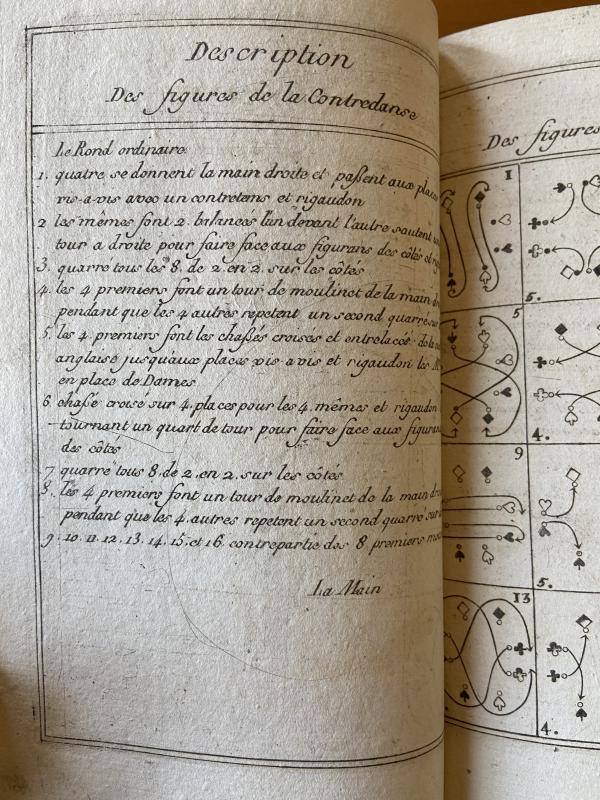 Description
Des figures de la Contredanse
Le Rond ordinaire.
1. quatre se donnent la main droite et paßent aux places
vis-a-vis avec un contretems et rigaudon
2 les mêmes font 2. balances l'un devant l'autre sautent un
tour a droite pour faire face aux figurans des côtés et
3. quarre tous les 8. de 2. en 2. sur les côtés
4. les 4 premiers font un tour de moulinet de la main
pendant que les 4 autres repetent un second quarre sur
5. les 4. premiers font les chaßés croisés et entrelaccé de la
anglaise jusquaux places vis-a-vis et rigaudon les
en place de Dames
6. chaße croisé sur 4. places pour les 4. mêmes et rigaudon
tournant un quart de tour pour faire face aux
des côtés
7 quarre tous 8. de 2. en 2. sur les côtés
8. les 4 premiers font un tour de moulinet de la main
pendant que les 4. autres repetent un second quarre sur
9. 10. 11. 12. 13. 14. 15. et 16. contrepartie des 8 premiers
La Main
Des figures
1
5.
5
4.
9
5.
13
4.